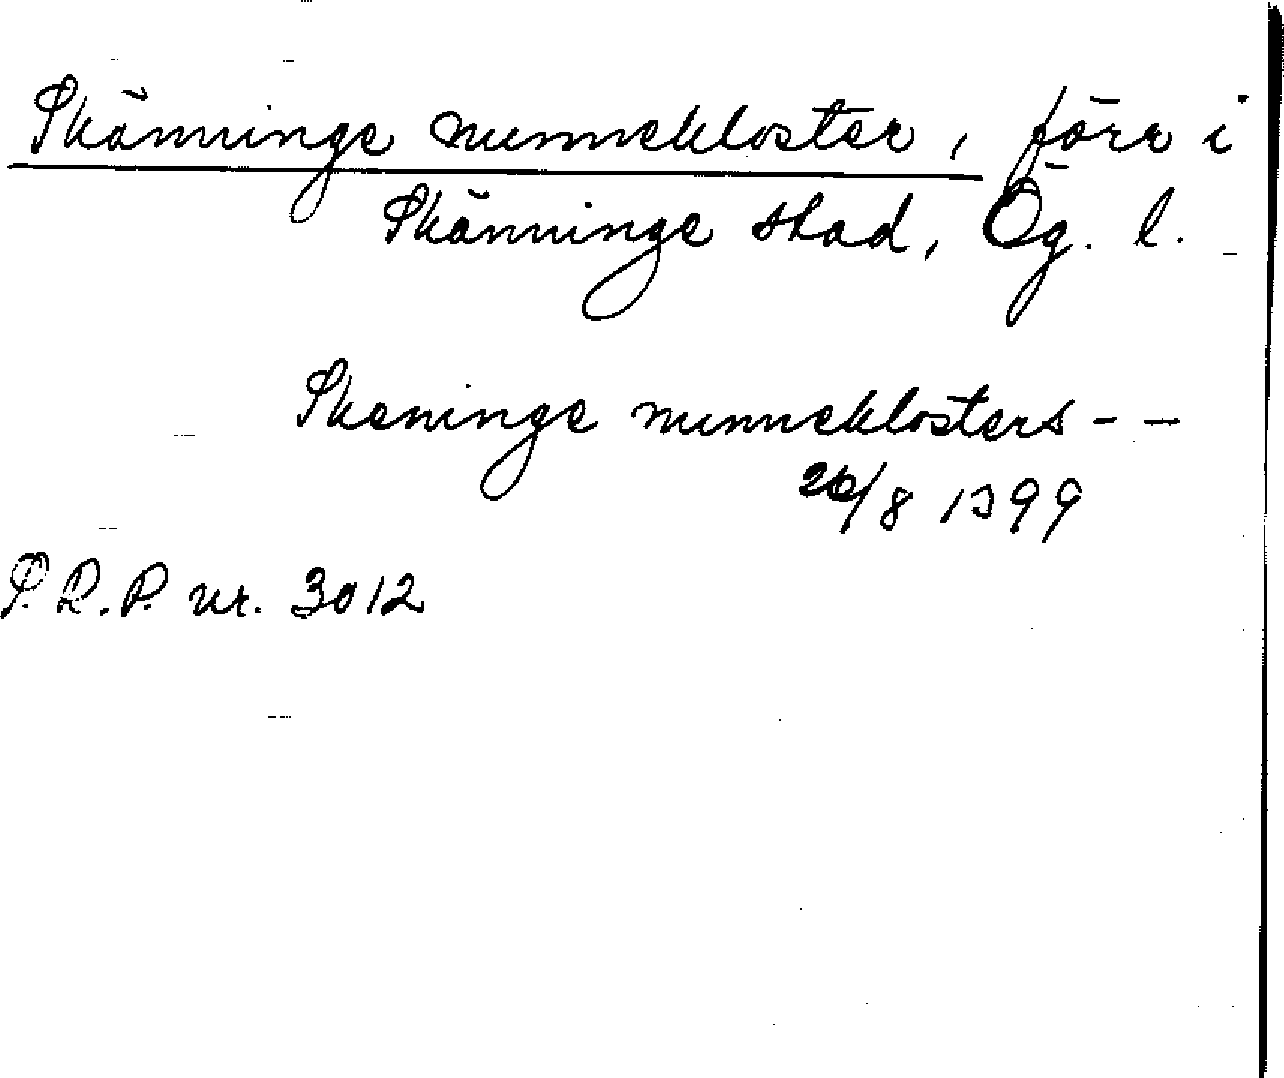 Skänninge nunnekloster, förr i
Skänninge stad, Ög. l.
Skeninge nunneklosters - -
26/8 1399
S.R.P. nr. 3012